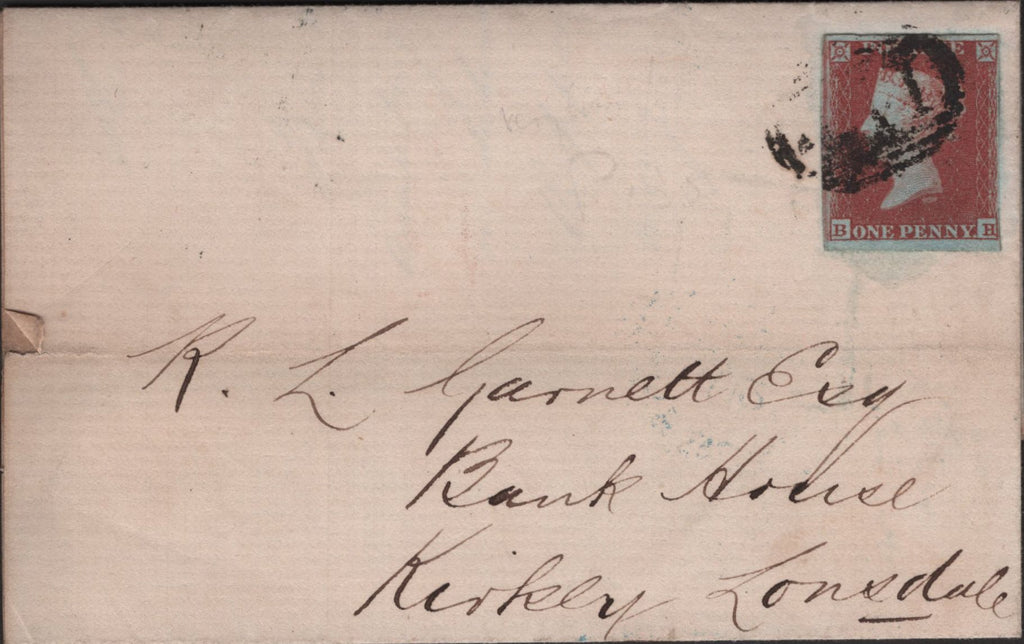 B ONE PENNY. H
R. L. Garnett Esq
Bank House
Kirkby Lonsdale